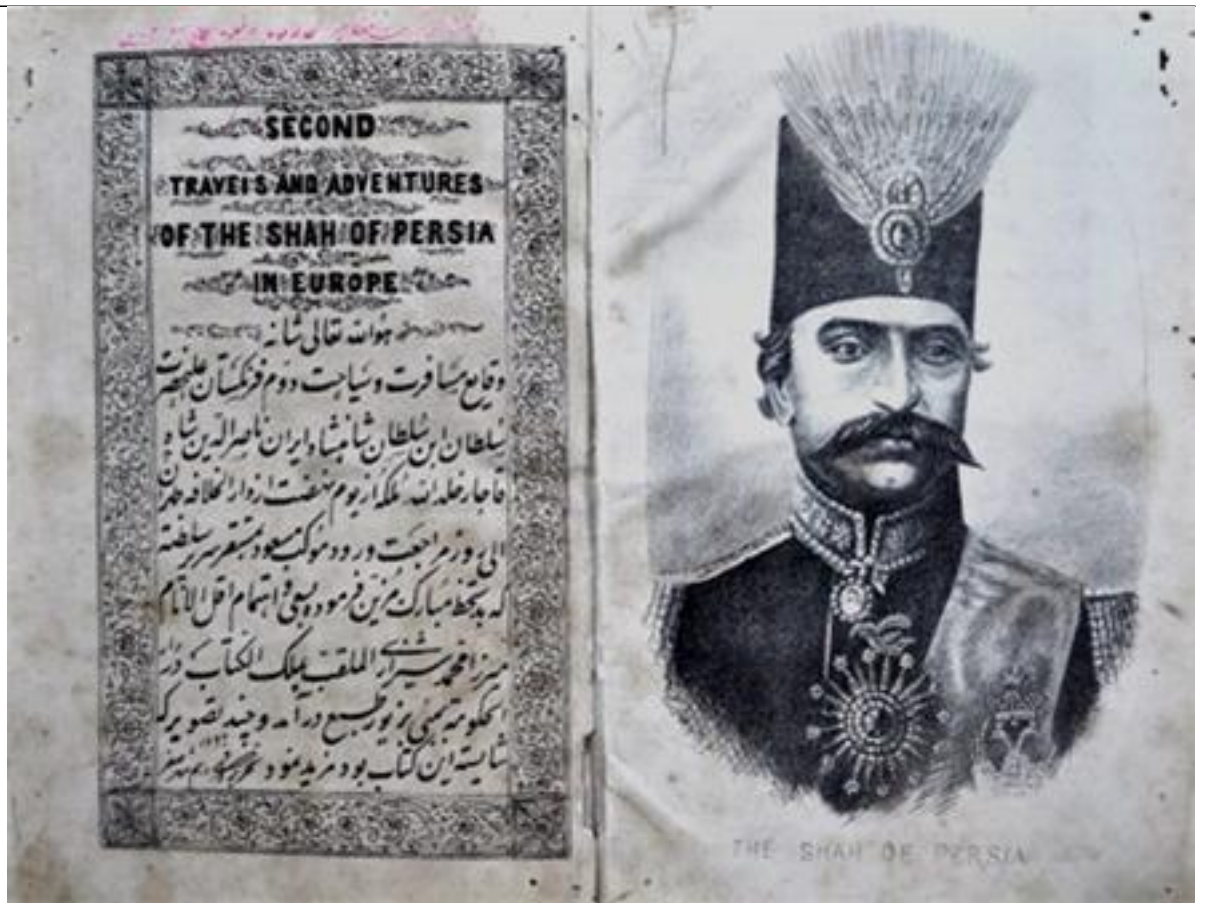 SECOND
TRAVELS AND ADVENTURES
OF THE SHAH OF PERSIA
IN EUROPE
هوالله تعالی شانه
وقایع مسافرت و سیاحت دوم فرنگستان علیحضرت
سلطان ابن سلطان شاهنشاه ایران ناصرالدین شاه
قاجار خلدالله ملکه از یوم نهضت از دارالخلافه طهران
الی روز مراجعت و ورود موکب مسعود بمستقر سریر سلطنة
که بخط مبارک مزین فرموده بسعی و اهتمام اقل الانام
میرزا محمد شیرازی الملقب بملک الکتاب در دار
الحکومة بمبئی بزیور طبع در آمد و چند تصویر که
شایسته این کتاب بود مزید نمود
THE SHAH OF PERSIA